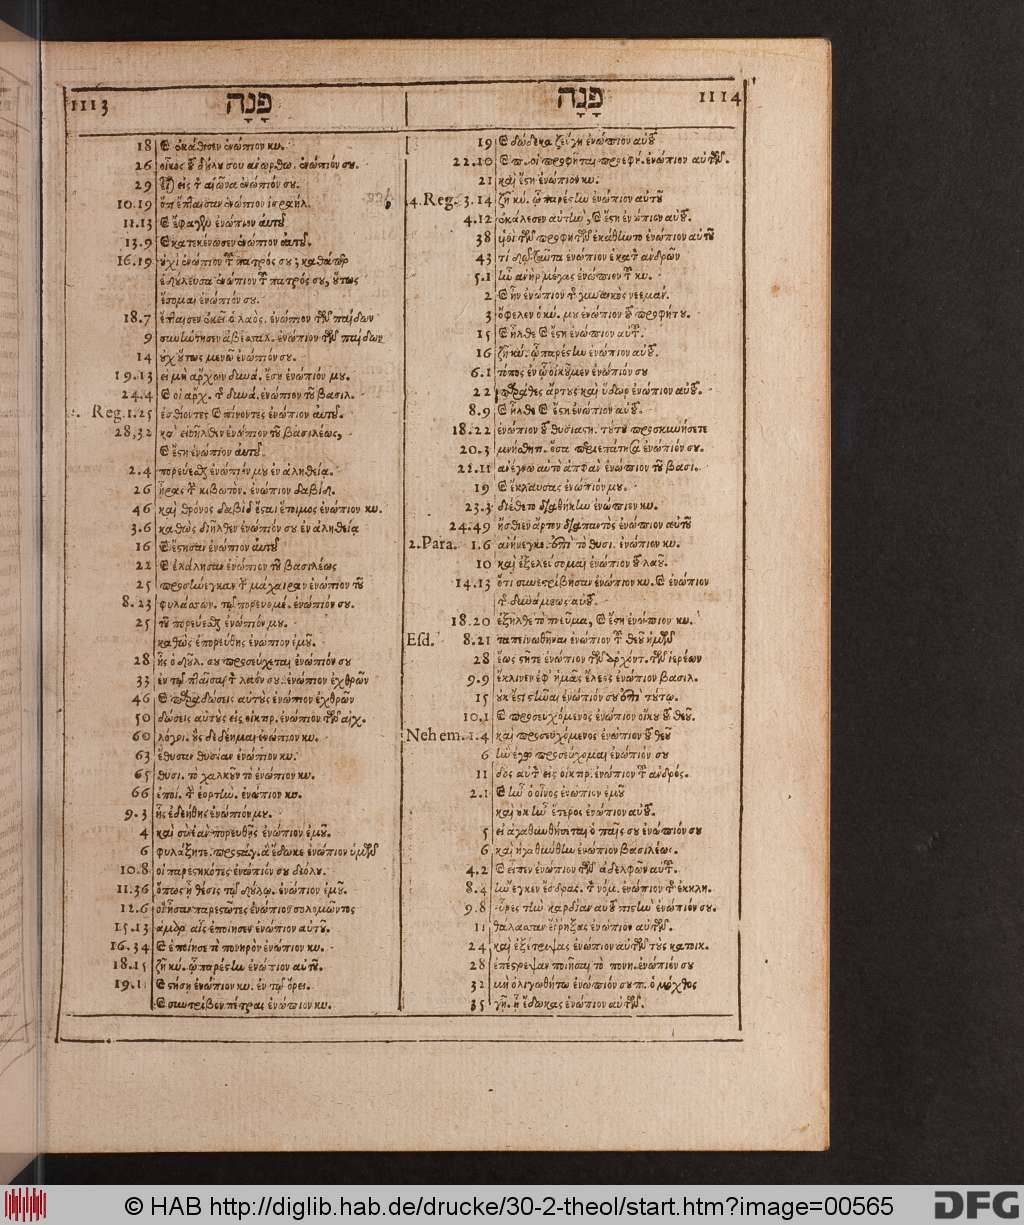 1113 פָּנָה
18 καὶ ἐκάθισεν ἐνώπιον κυ.
26 οἶκος τοῦ δούλου σου ἀνορθω. ἐνώπιόν σου.
29 εἰς τὸν αἰῶνα ἐνώπιόν σου.
10.19 ὅτι ἔπταισαν ἐνώπιον ἰσραήλ.
11.13 καὶ ἔφαγεν ἐνώπιον αὐτοῦ
13.9 καὶ κατεκένωσεν ἐνώπιον αὐτοῦ.
16.19 οὐχὶ ἐνώπιον τοῦ πατρός σου; καθάπερ
ἐδούλευσα ἐνώπιον τοῦ πατρός σου, οὕτως
ἔσομαι ἐνώπιόν σου.
18.7 ἔπταισεν ἐκεῖ ὁ λαὸς. ἐνώπιον τῶν παίδων
9 ἐνώπιον τῶν παίδων
14 οὐχ οὕτως μενῶ ἐνώπιόν σου.
19.13 εἰ μὴ ἄρχων δυνά. ἔσῃ ἐνώπιόν μου.
24.4 καὶ οἱ ἀρχ. τῆς δυνά. ἐνώπιον τοῦ βασιλ.
Reg. 1.25 ἐσθίοντες καὶ πίνοντες ἐνώπιον αὐτοῦ.
28,32 καὶ εἰσῆλθεν ἐνώπιον τοῦ βασιλέως,
καὶ ἔστη ἐνώπιον αὐτοῦ.
2.4 πορεύεσθαι ἐνώπιόν μου ἐν ἀληθείᾳ.
26 ἦρας τὴν κιβωτὸν. ἐνώπιον δαβίδ.
46 καὶ θρόνος δαβὶδ ἔσται ἕτοιμος ἐνώπιον κυ.
3.6 καθὼς διῆλθεν ἐνώπιόν σου ἐν ἀληθείᾳ
16 καὶ ἔστησαν ἐνώπιον αὐτοῦ
22 καὶ ἐλάλησαν ἐνώπιον τοῦ βασιλέως
25 προσήνεγκαν τὴν μάχαιραν ἐνώπιον τοῦ
8.23 φυλάσσων. τῷ πορευομέ. ἐνώπιόν σου.
25 τοῦ πορεύεσθαι ἐνώπιόν μου.
καθὼς ἐπορεύθης ἐνώπιον ἐμοῦ.
28 ἧς ὁ δοῦλ. σου προσεύχεται ἐνώπιόν σου
33 ἐν τῷ πταῖσαι τὸν λαόν σου. ἐνώπιον ἐχθρῶν
46 καὶ παραδώσεις αὐτοὺς ἐνώπιον ἐχθρῶν
50 δώσεις αὐτοὺς εἰς οἰκτιρ. ἐνώπιον τῶν αἰχ.
60 λόγοι. οὓς δεδέημαι ἐνώπιον κυ.
63 ἔθυσαν θυσίαν ἐνώπιον κυ.
65 θυσι. τὸ χαλκοῦν τὸ ἐνώπιον κυ.
66 ἐποί. τὴν ἑορτὴν. ἐνώπιον κυ.
9.3 ἧς ἐδεήθης ἐνώπιόν μου.
4 καὶ σὺ ἐὰν πορευθῇς ἐνώπιον ἐμοῦ.
6 φυλάξητε. προστάγ. ἃ ἔδωκε ἐνώπιον ὑμῶν
10.8 οἱ παρεστηκότες ἐνώπιόν σου διόλου.
11.36 ὅπως ᾖ θέσις τῷ δούλῳ. ἐνώπιον ἐμοῦ.
12.6 οἳ ἦσαν παρεστῶτες ἐνώπιον σολομῶντος
15.13 ἐποίησεν ἐνώπιον αὐτοῦ.
16.34 καὶ ἐποίησε τὸ πονηρὸν ἐνώπιον κυ.
18.15 ζῇ κύ. ᾧ παρέστην ἐνώπιον αὐτοῦ.
19.11 καὶ στήσῃ ἐνώπιον κυ. ἐν τῷ ὄρει.
καὶ συντρίβων πέτρας ἐνώπιον κυ.
פָּנָה 1114
19 καὶ δώδεκα ζεύγη ἐνώπιον αὐτοῦ
22.10 καὶ π. οἱ προφῆται προεφή. ἐνώπιον αὐτῶν.
21 καὶ ἔστη ἐνώπιον κυ.
4. Reg. 3.14 ζῇ κύ. ᾧ παρέστην ἐνώπιον αὐτοῦ
4.12 ἐκάλεσεν αὐτὴν, καὶ ἔστη ἐνώπιον αὐτοῦ.
38 υἱοὶ τῶν προφητῶν ἐκάθηντο ἐνώπιον αὐτοῦ
43 τί δῶ ταῦτα ἐνώπιον ἑκατὸν ἀνδρῶν
5.1 ἦν ἀνὴρ μέγας ἐνώπιον τοῦ κυ.
2 καὶ ἦν ἐνώπιον τῆς γυναικὸς νεεμάν.
3 ὄφελεν ὁ κύ. μου ἐνώπιον τοῦ προφήτου.
15 καὶ ἦλθε καὶ ἔστη ἐνώπιον αὐτοῦ.
16 ζῇ κύ. ᾧ παρέστην ἐνώπιον αὐτοῦ.
6.1 τόπος ἐν ᾧ οἰκοῦμεν ἐνώπιόν σου
22 παράθες ἄρτους καὶ ὕδωρ ἐνώπιον αὐτοῦ.
8.9 καὶ ἦλθε καὶ ἔστη ἐνώπιον αὐτοῦ.
18.22 ἐνώπιον τοῦ θυσιαστη. τούτου προσκυνήσετε
20.3 μνήσθητι. ὅσα περιεπάτησα ἐνώπιόν σου.
22.11 ἀνέγνω αὐτὸ σαπφὰν ἐνώπιον τοῦ βασι.
19 καὶ ἔκλαυσας ἐνώπιόν μου.
23.3 διέθετο διαθήκην ἐνώπιον κυ.
24.49 ἤσθιεν ἄρτον διαπαντὸς ἐνώπιον αὐτοῦ
2. Para. 1.6 ἀνήνεγκε. ἐπὶ τὸ θυσι. ἐνώπιον κυ.
10 καὶ ἐξελεύσομαι ἐνώπιον τοῦ λαοῦ.
14.13 ὅτι συνετρίβησαν ἐνώπιον κυ. καὶ ἐνώπιον
τῆς δυνάμεως αὐτοῦ.
18.20 ἐξῆλθε τὸ πνεῦμα, καὶ ἔστη ἐνώπιον κυ.
Esd. 8.21 ταπεινωθῆναι ἐνώπιον τοῦ θεοῦ ἡμῶν
28 ἕως στῆτε ἐνώπιον τῶν ἀρχόντ. τῶν ἱερέων
9.9 ἔκλινεν ἐφ' ἡμᾶς ἔλεος ἐνώπιον βασιλ.
15 οὐκ ἔστι στῆναι ἐνώπιόν σου ἐπὶ τούτῳ.
10.1 καὶ προσευχόμενος ἐνώπιον οἴκου τοῦ θεοῦ.
Nehem. 1.4 καὶ προσευχόμενος ἐνώπιον τοῦ θεοῦ
6 ἣν ἐγὼ προσεύχομαι ἐνώπιόν σου
11 δὸς αὐτὸν εἰς οἰκτιρ. ἐνώπιον τοῦ ἀνδρός.
2.1 καὶ ἦν ὁ οἶνος ἐνώπιον ἐμοῦ
καὶ οὐκ ἦν ἕτερος ἐνώπιον αὐτοῦ.
5 εἰ ἀγαθυνθήσεται ὁ παῖς σου ἐνώπιόν σου
6 καὶ ἠγαθύνθην ἐνώπιον βασιλέως.
4.2 καὶ εἶπεν ἐνώπιον τῶν ἀδελφῶν αὐτοῦ.
8.4 ἤνεγκεν ἔσδρας. τὸν νόμ. ἐνώπιον τῆς ἐκκλη.
9.8 εὗρες τὴν καρδίαν αὐτοῦ πιστὴν ἐνώπιόν σου.
11 θάλασσαν ἔρρηξας ἐνώπιον αὐτῶν.
24 καὶ ἐξέτριψας ἐνώπιον αὐτῶν τοὺς κατοικ.
28 ἐπέστρεψαν ποιῆσαι τὸ πονη. ἐνώπιόν σου
32 μὴ ὀλιγωθήτω ἐνώπιόν σου π. ὁ μόχθος
35 γῆ. ᾗ ἔδωκας ἐνώπιον αὐτῶν.
© HAB http://diglib.hab.de/drucke/30-2-theol/start.htm?image=00565
DFG